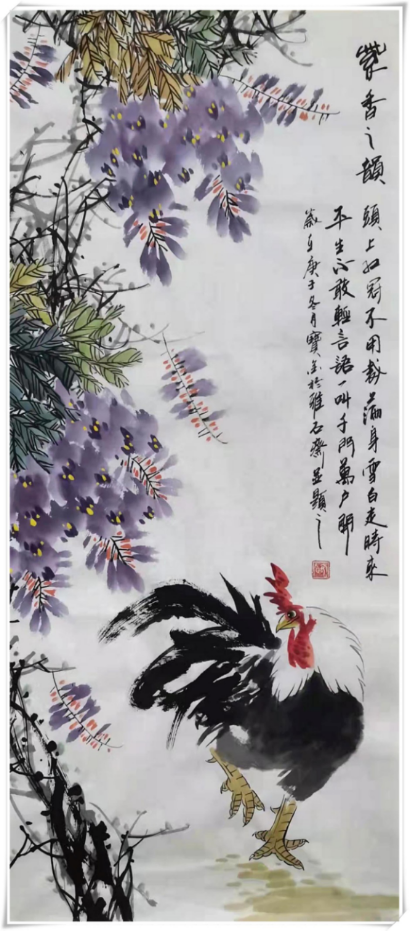 紫香之韻 頭上红冠不用裁滿身雪白走時來
平生不敢輕言語一叫千門萬户開
歲在庚子冬月寶於雅石齋並題之